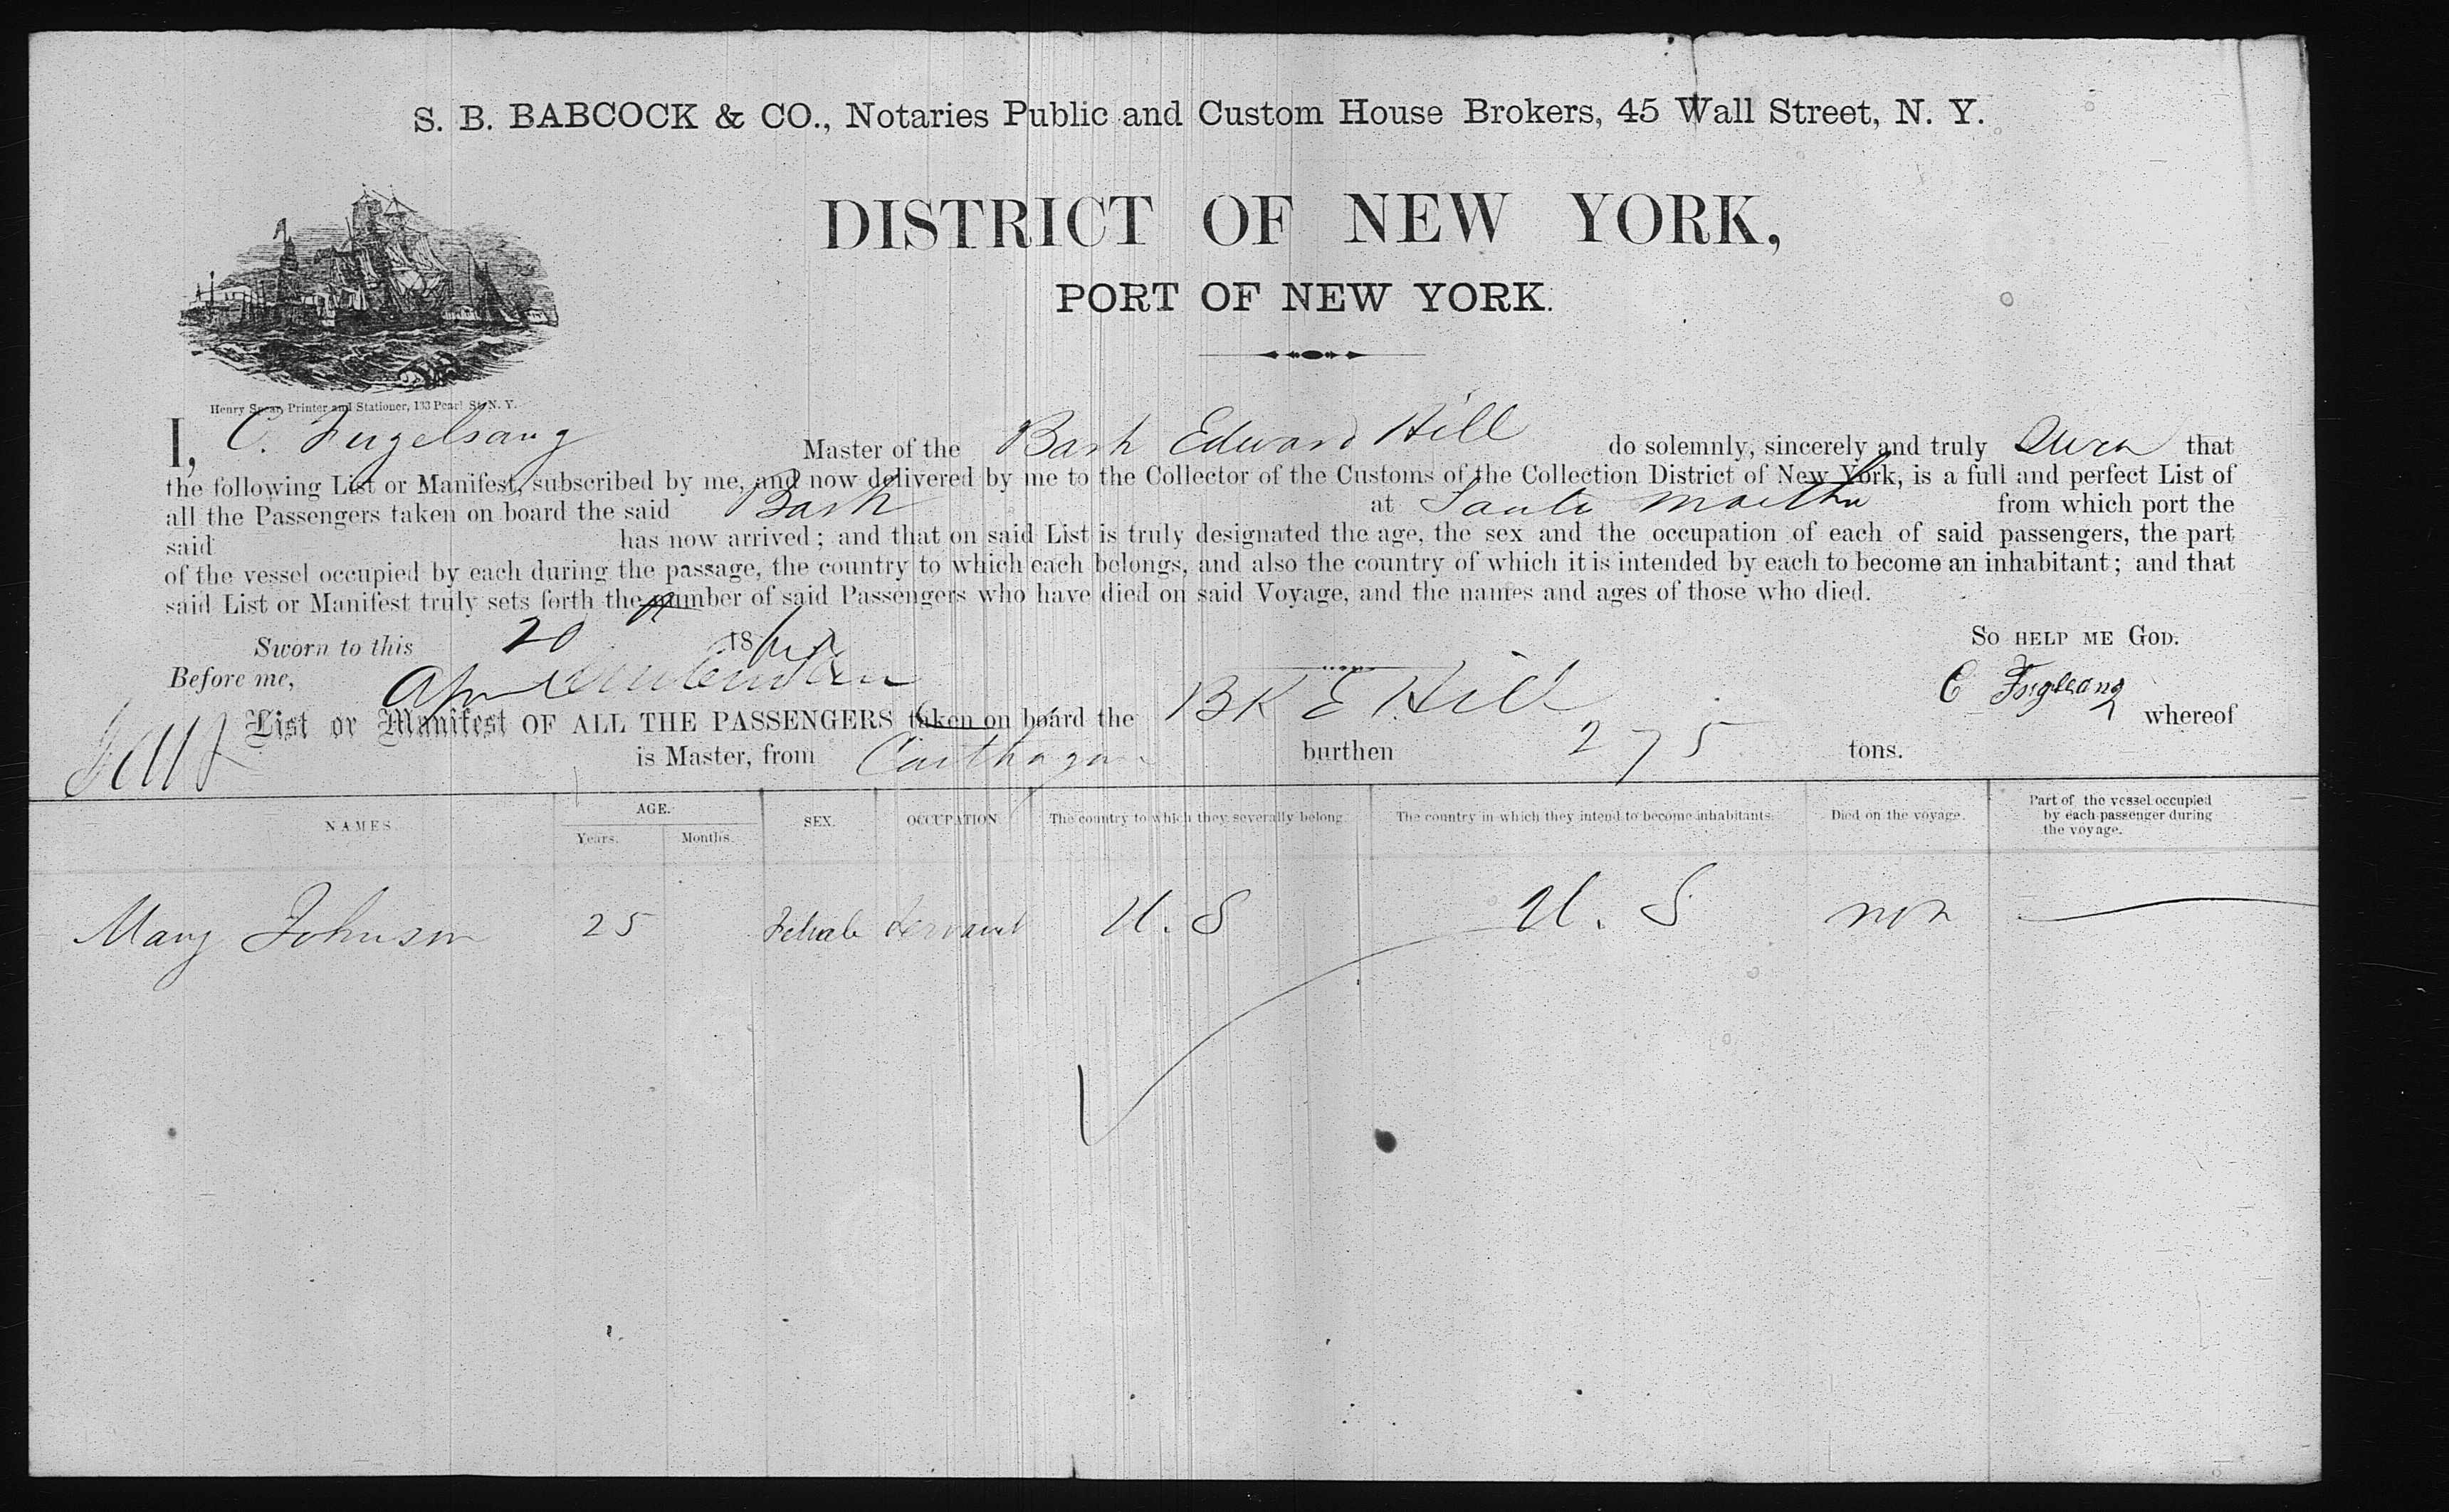 S. B. BABCOCK & CO., Notaries Public and Custom House Brokers, 45 Wall Street, N. Y.
DISTRICT OF NEW YORK,
PORT OF NEW YORK.
Henry Spear, Printer and Stationer, 133 Pearl St. N. Y.
I, C. Fugelsang Master of the Bark Edward Hill do solemnly, sincerely and truly Swea that
the following List or Manifest, subscribed by me, and now delivered by me to the Collector of the Customs of the Collection District of New York, is a full and perfect List of
all the Passengers taken on board the said Bark at Santa Martha from which port the
said has now arrived; and that on said List is truly designated the age, the sex and the occupation of each of said passengers, the part
of the vessel occupied by each during the passage, the country to which each belongs, and also the country of which it is intended by each to become an inhabitant; and that
said List or Manifest truly sets forth the number of said Passengers who have died on said Voyage, and the names and ages of those who died.
Sworn to this 20 186 SO HELP ME GOD.
Before me, C Fugelsang
List or Manifest OF ALL THE PASSENGERS taken on board the BK E Hill whereof
is Master, from Carthagena burthen 275 tons.
NAMES. AGE. Years. Months. SEX. OCCUPATION The country to which they severally belong. The country in which they intend to become inhabitants. Died on the voyage. Part of the vessel occupied by each passenger during the voyage.
Mary Johnson 25 Female Servant U. S U. S non